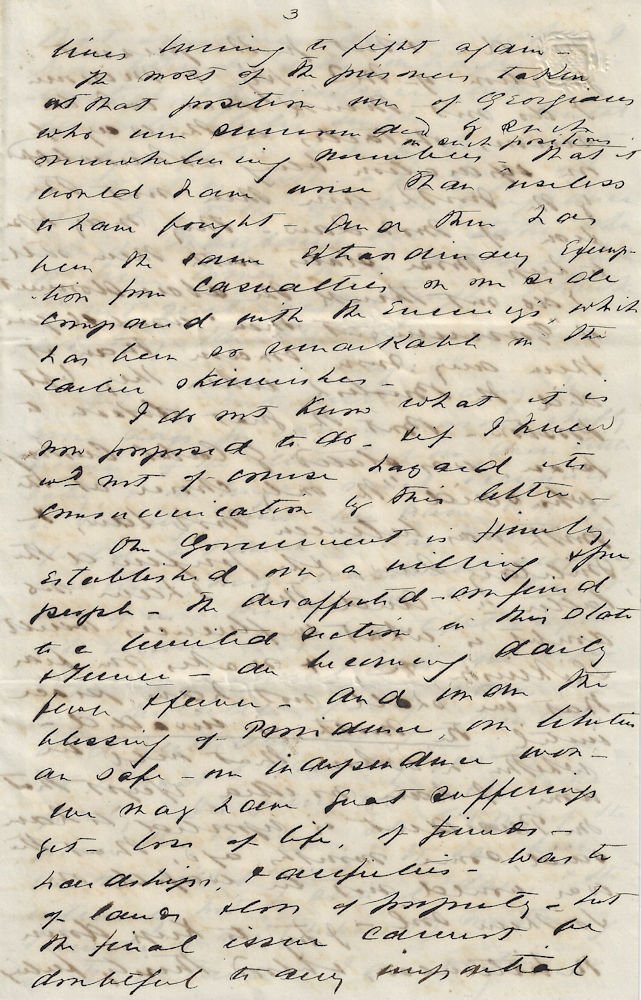 3
lives turning to fight again -
The most of the prisoners taken
at that position were of Georgians
who were surrounded by such
in such positions
overwhelming numbers - that it
would have worse than useless
to have fought - And there has
been the same extraordinary exemp-
tion from casualties on our side
compared with the Enemy's, which
has been so remarkable in the
earlier skirmishes -
I do not know what it is
now proposed to do - & if I knew
wd not of course hazard its
communication by this letter -
Our Government is firmly
established over a willing & free
people - The disaffected - confined
to a limited section in this State
& Tenne - are becoming daily
fewer & fewer - And under the
blessing of Providence, our liberties
are safe - our independence won -
we may have great sufferings
yet - loss of life, of friends -
hardships, & - waste
of lands & loss of property - but
the final issue cannot be
doubtful to any impartial